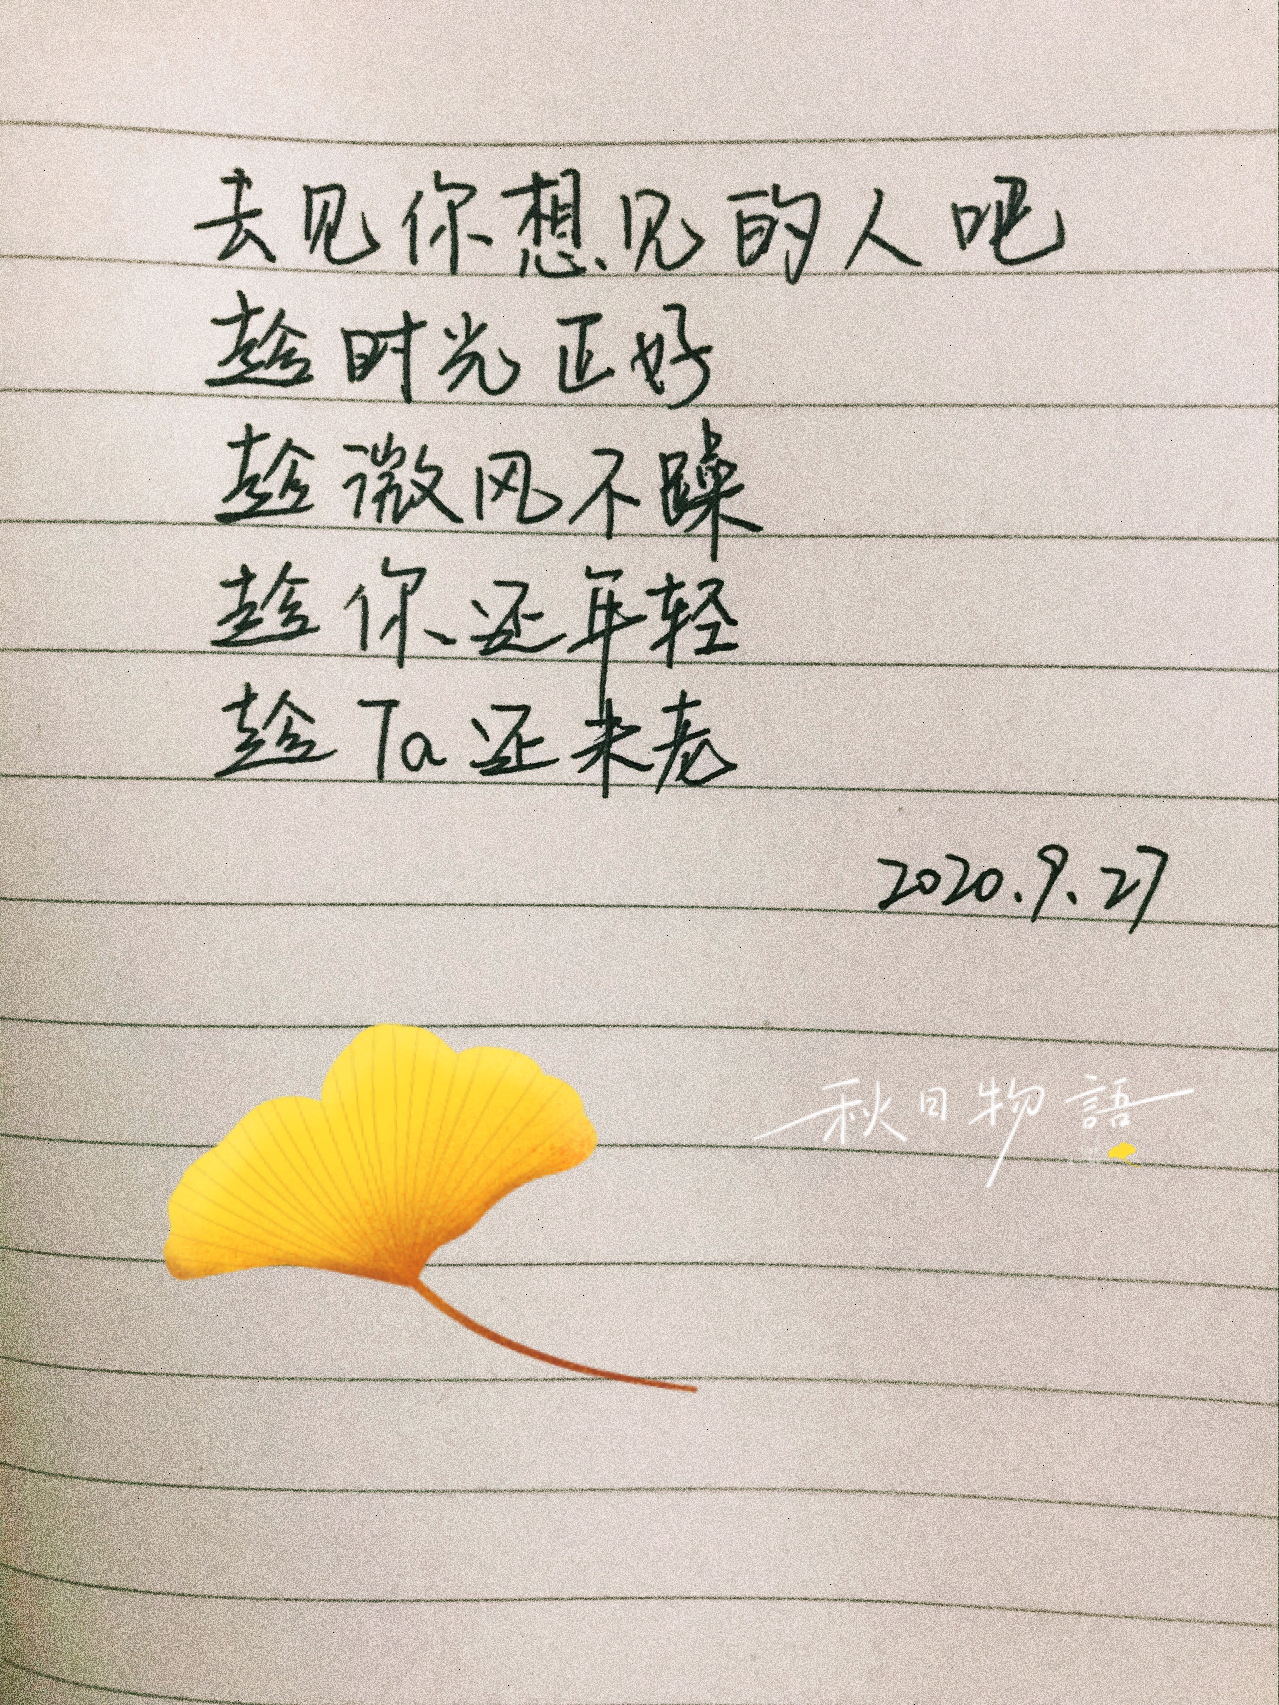 去见你想见的人吧
趁时光正好
趁微风不躁
趁你还年轻
趁Ta还未老
2020.9.27
秋日物語